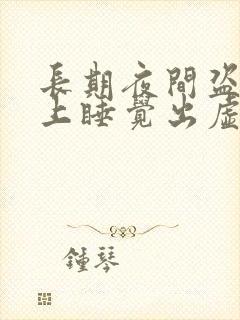 長期夜間盜
上睡覺出虛
鍾琴